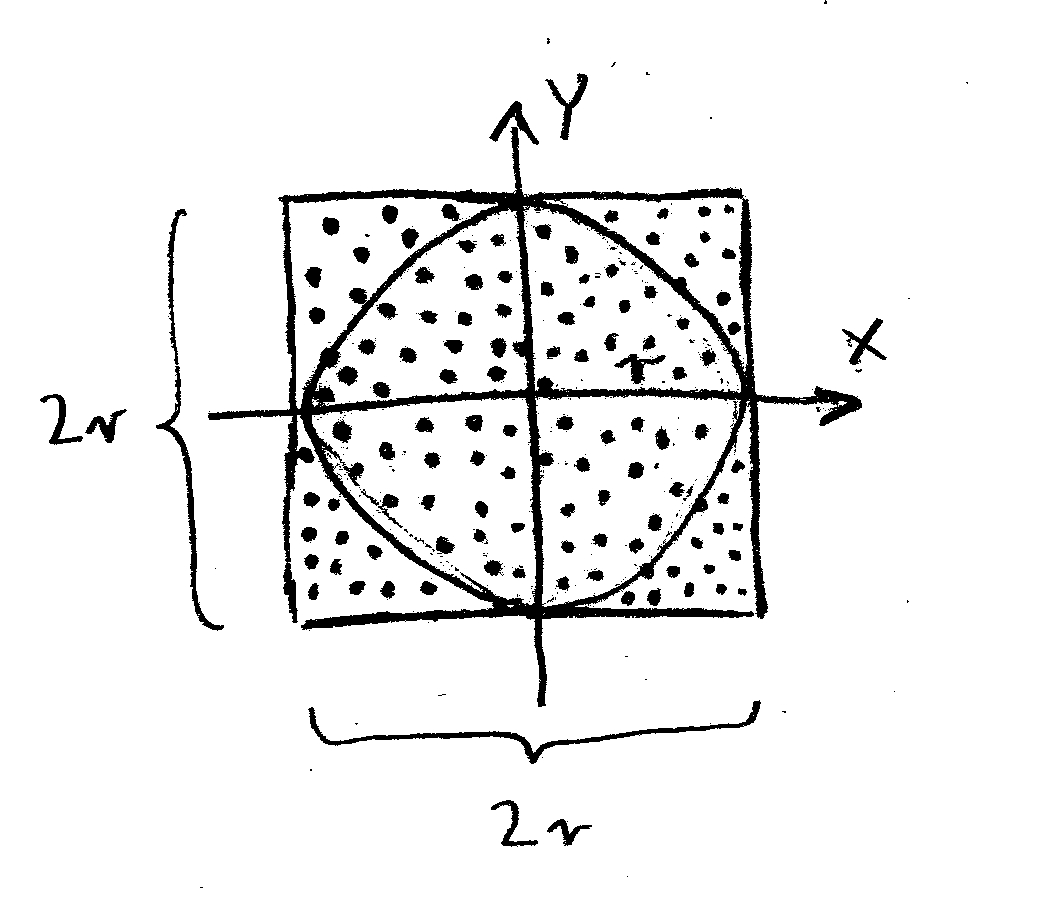 Y
X
r
2r
2r